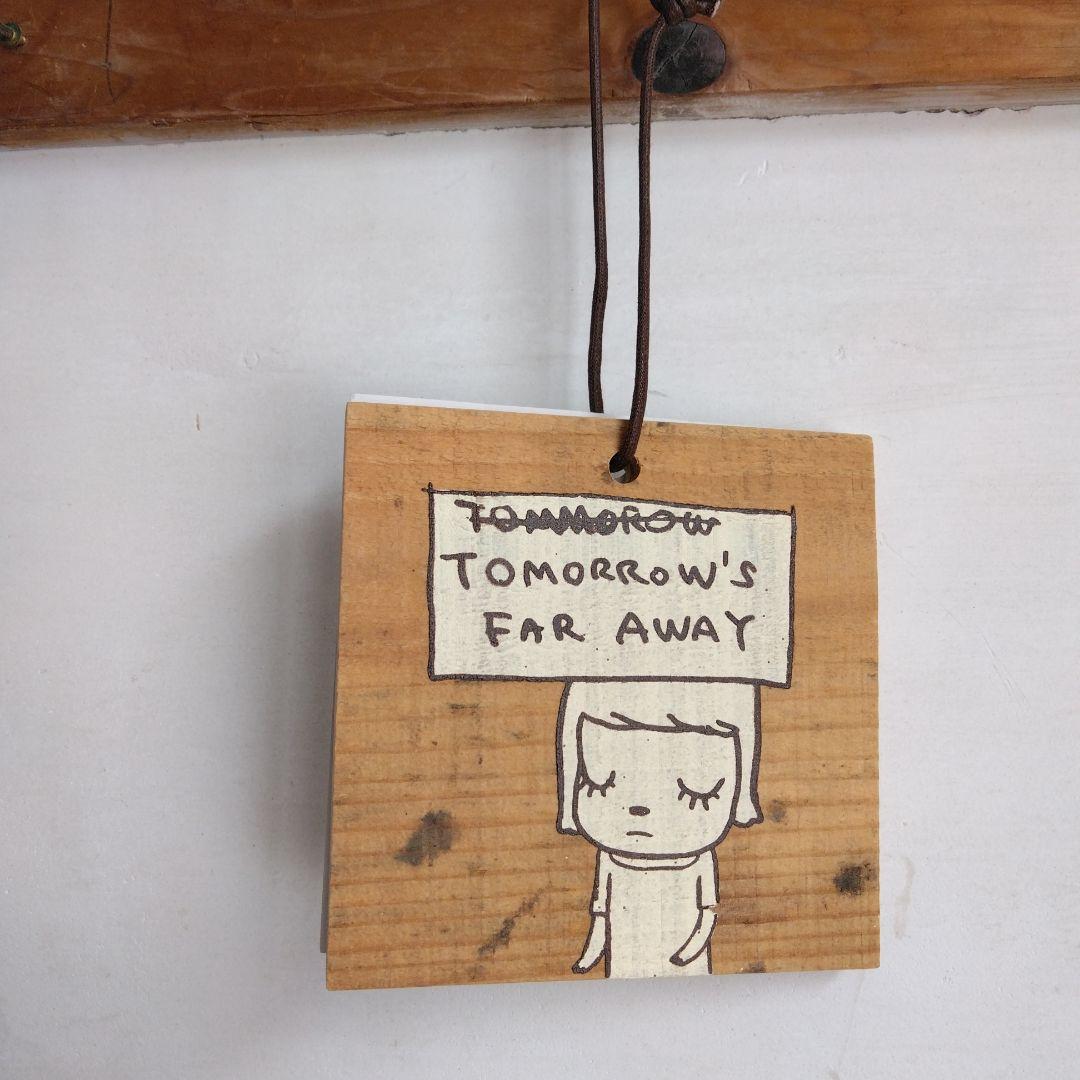 TOMMOROW
TOMORROW'S
FAR AWAY